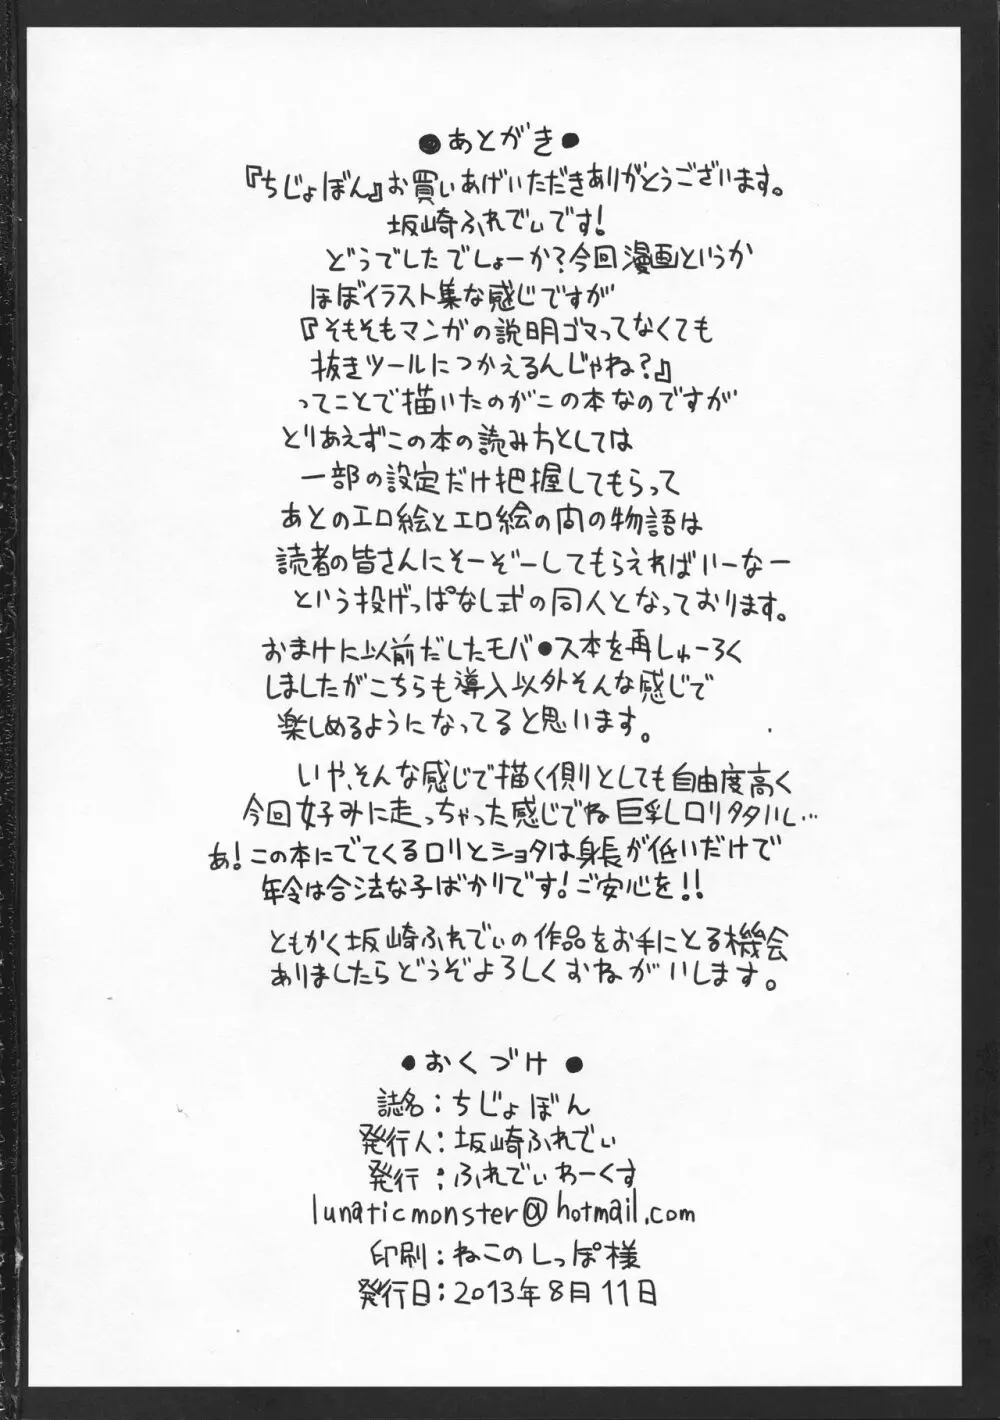 ●あとがき●
『ちじょぼん』お買いあげいただきありがとうございます。
坂崎ふれでぃです!
どうでしたでしょーか?今回漫画というか
ほぼイラスト集な感じですが
『そもそもマンガの説明ゴマってなくても
抜きツールにつかえるんじゃね?』
ってことで描いたのがこの本なのですが
とりあえずこの本の読み方としては
一部の設定だけ把握してもらって
あとのエロ絵とエロ絵の間の物語は
読者の皆さんにそーぞーしてもらえればいーなー
という投げっぱなし式の同人となっております。
おまけに以前だしたモバ●ス本を再しゅーろく
しましたがこちらも導入以外そんな感じで
楽しめるようになってると思います。
いや、そんな感じで描く側りとしても自由度高く
今回好みに走っちゃった感じでね巨乳しロリタ多いし…
あ!この本にでてくるロリとショタは身長が低いだけで
年令は合法な子ばかりです!ご安心を!!
ともかく坂崎ふれでぃの作品をお手にとる機会
ありましたらどうぞよろしくおねがいします。
●おくづけ●
誌名:ちじょぼん
発行人:坂崎ふれでぃ
発行:ふれでぃわーくす
lunaticmonster@hotmail.com
印刷:ねこのしっぽ様
発行日:2013年8月11日